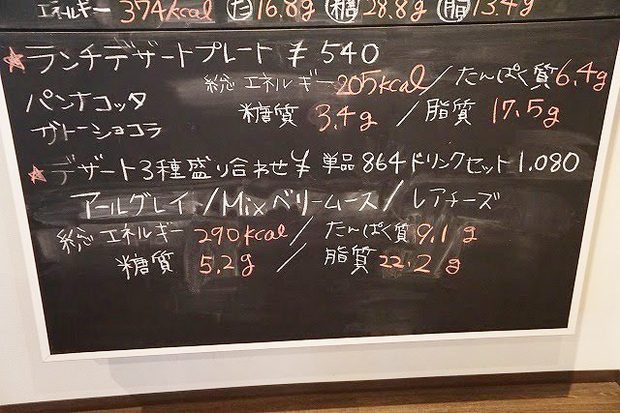 エネルギー 374kcal た 16.8g 糖 28.8g 脂 13.4g
★ランチデザートプレート ¥540
総エネルギー205kcal/たんぱく質6.4g
パンナコッタ
糖質 3.4g / 脂質 17.5g
ガトーショコラ
★デザート3種盛り合わせ¥ 単品864ドリンクセット1.080
アールグレイ/Mixベリームース/レアチーズ
総エネルギー 290kcal / たんぱく質9.1g
糖質 5.2g / 脂質22.2g